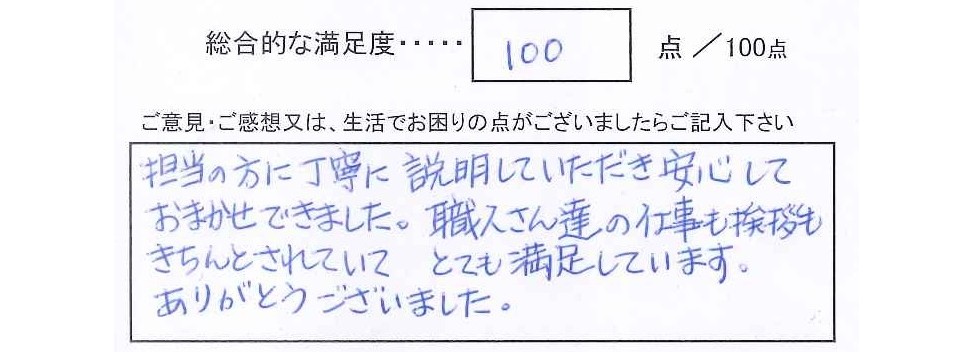 総合的な満足度・・・・・ 100 点 ／100点
ご意見・ご感想又は、生活でお困りの点がございましたらご記入下さい
担当の方に丁寧に説明していただき安心して
おまかせできました。職人さん達の仕事も挨拶も
きちんとされていて とても満足しています。
ありがとうございました。